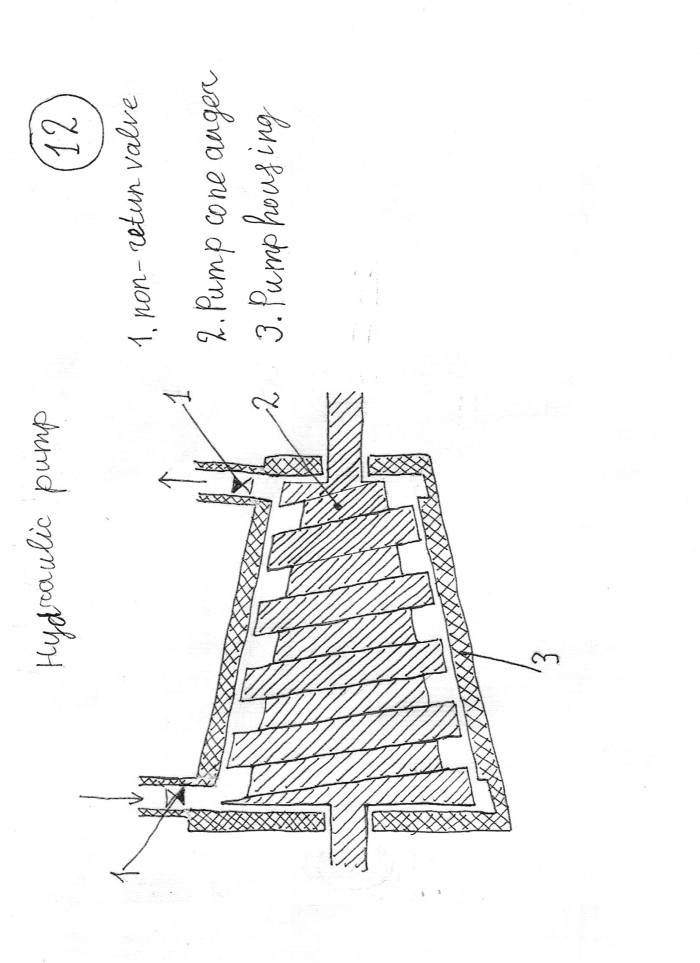 12
Hydraulic pump
1. non-retun valve
2. Pump cone auger
3. Pump housing
1
2
1
3